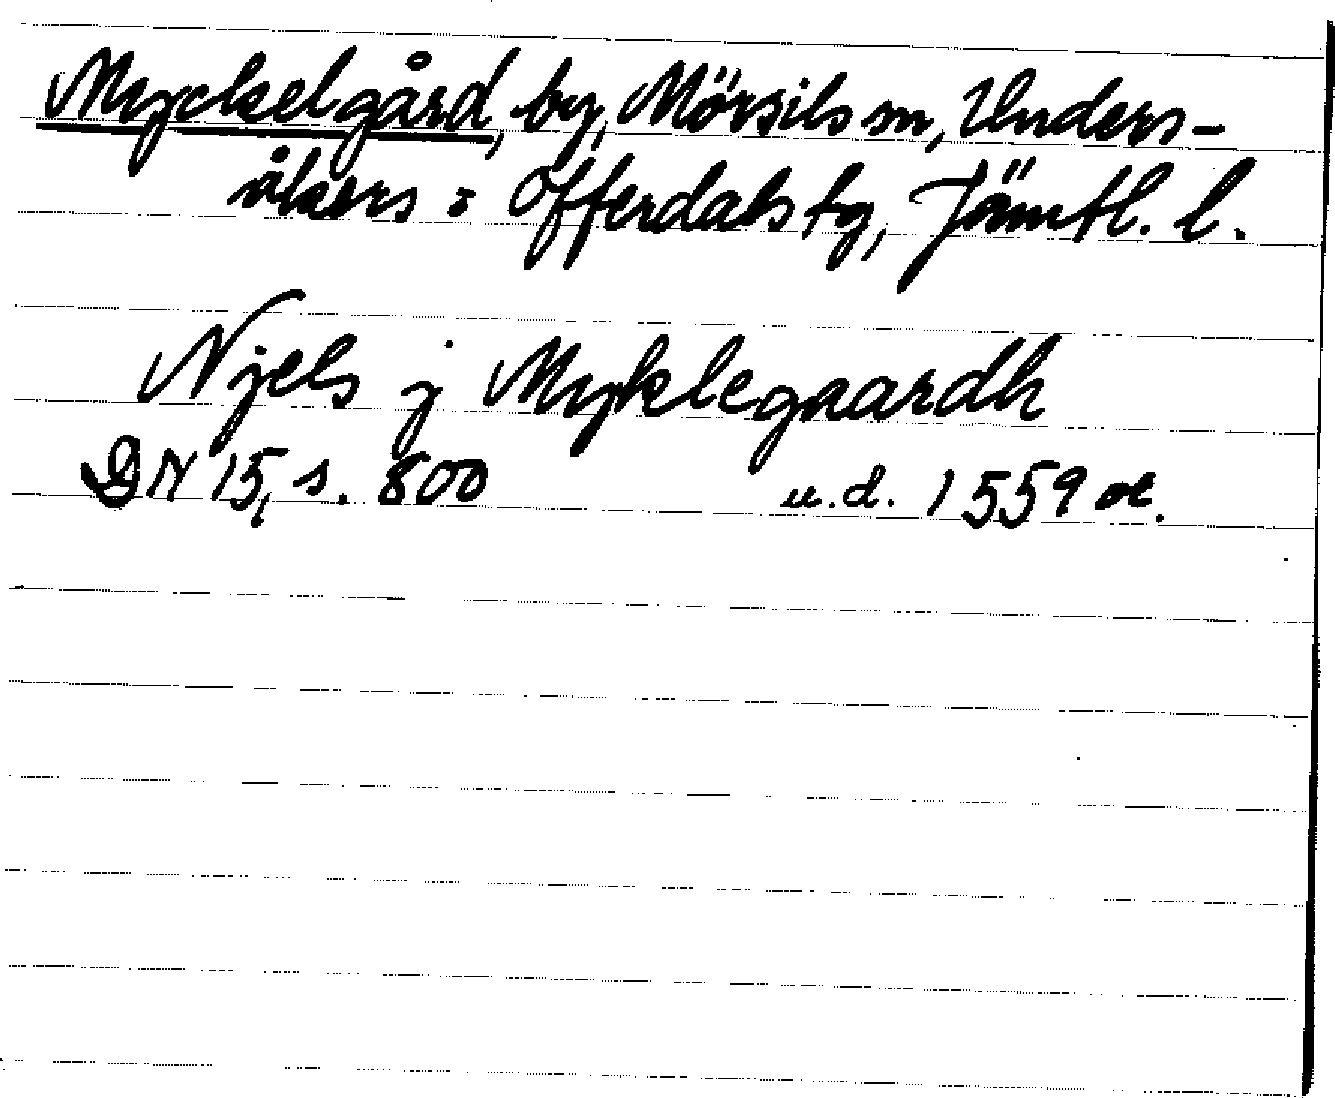 Myckelgård, by, Mörsils sn, Unders-
åkers o Offerdals tg, Jämtl. l.
Njels j Myklegaardh
DN 15, s. 800 u.d. 1559 or.